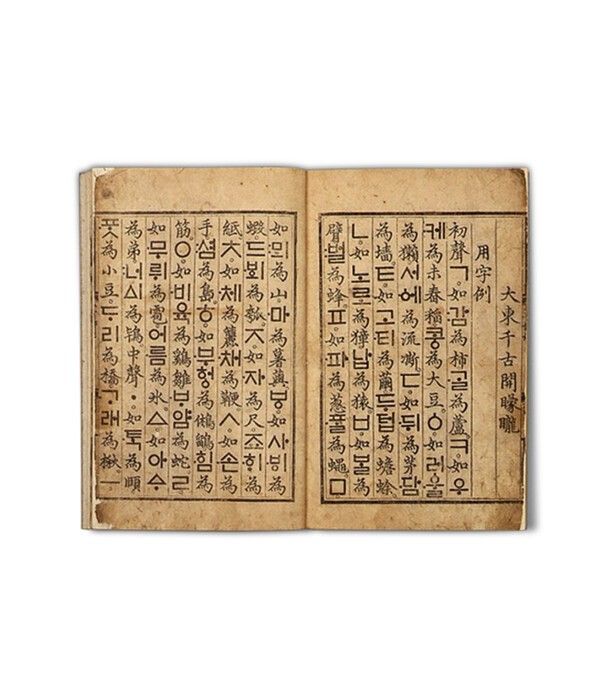 大東千古開朦朧
用字例
初聲ㄱ。如감為柿。ᄀᆞᆯ為蘆。ㅋ。如우
케為未舂稻。콩為大豆。ㆁ。如러울
為獺。서에為流凘。ㄷ。如뒤為茅。담
為墻。ㅌ。如고티為繭。두텁為蟾蜍。
ㄴ。如노로為獐。납為猿。ㅂ。如ᄇᆞᆯ為
臂。벌為蜂。ㅍ。如파為葱。ᄑᆞᆯ為蠅。ㅁ。
如뫼為山。마為薯藇。ㅸ。如사ᄫᅵ為
蝦。드ᄫᅴ為瓠。ㅈ。如자為尺。죠ᄒᆡ為
紙。ㅊ。如체為簏。채為鞭。ㅅ。如손為
手。셤為島。ㅎ。如부헝為鵂鶹。힘為
筋。ㅇ。如비육為鷄雛。ᄇᆞ얌為蛇。ㄹ。
如무뤼為雹。어름為氷。ㅿ。如아ᅀᆞ
為弟。너ᅀᅵ為鴇。中聲ㆍ。如ᄐᆞᆨ為頤。
ᄑᆞᆺ為小豆。ᄃᆞ리為橋。ᄀᆞ래為楸。ㅡ。